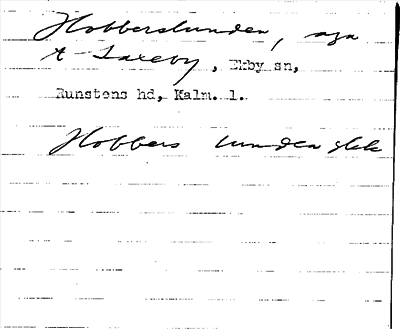 Hobberslunden, äga
t Laxeby, Erby sn,
Runstens hd, Kalm. l.
Hobbers lunden